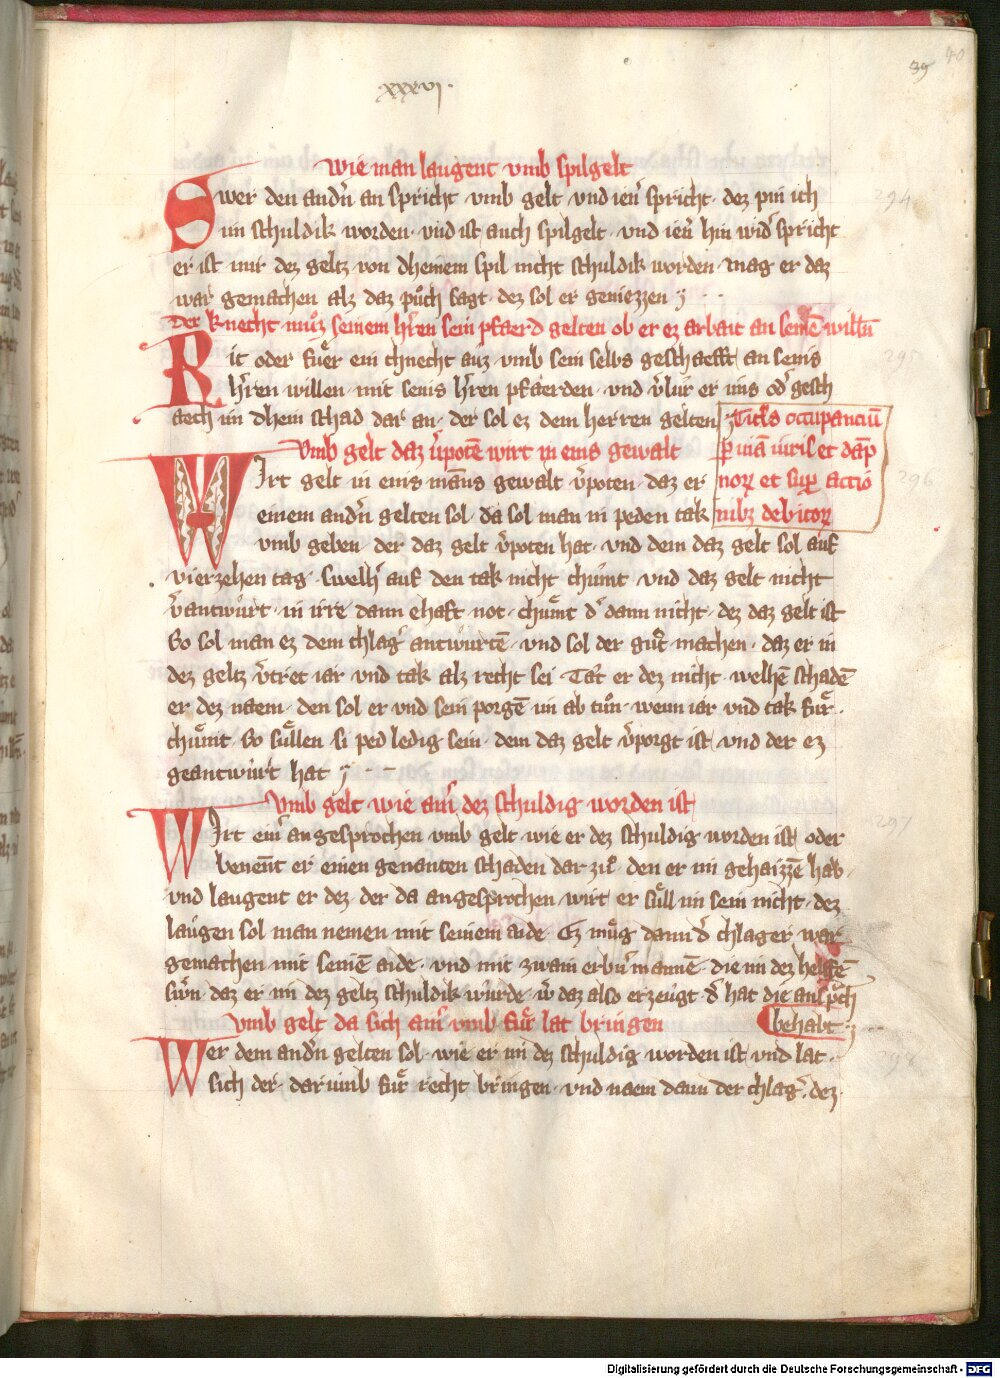 xxxvj.
39
40
Wie man laugent vmb spilgelt
Swer den andn̄ an spricht · vmb gelt · vnd ien̄ spricht · dez pin ich
im schuldik worden · vnd ist auch spilgelt · vnd ien̄ hin wid̄ spricht
er ist mir dez geltz von dheinem spil nicht schuldik worden · mag er daz
war gemachen alz daz půch sagt · dez sol er geniezzen
Der knecht můz seinem h̄ren sein pfaerd gelten ob er ez arbait an seinē willn̄
294
Rit oder fuͤr ein chnecht auz vmb sein selbs geschaefft · an seins
295
h̄ren willen · mit seins h̄ren pfaerden · vnd v̄lur er uns od̄ gesch
aech im dhein schad dar an · der sol ez dem herren gelten
Titl̄s occupanciū
p̄ viā iuris et dāp
norꝝ et suꝑ actio
nibꝫ debitorꝝ
Vmb gelt daz v̄potē wirt in eins gewalt
Wirt gelt in eins māns gewalt v̄poten · daz er
296
einem andn̄ gelten sol · da sol man in peden tak
vmb geben · der daz gelt v̄poten hat · vnd dem daz gelt sol auf
vierzehen tag · swelh̄ auf den tak nicht chūmt · vnd daz gelt nicht
v̄antwuͤrt · in irre dann ehaft not · chuͤmt d̄ dann nicht · dez daz gelt ist
So sol man ez dem chlaḡ antwuͤrtē · vnd sol der guͤt machen · daz er in
dez geltz v̄tret iar · vnd tak alz recht sei · Taͤt er dez nicht · welhē schadē
er dez naem · den sol er vnd sein porgē im ab tuͦn · wenn iar vnd tak fuͤr ·
chuͤmt · So suͤllen si ped ledig sein · dem daz gelt v̄porgt ist · vnd der ez
geantwuͤrt hat
Vmb gelt · wie ain̄ dez schuldig worden ist
Wirt ein̄ angesprochen vmb gelt · wie er dez schuldig worden ist · oder
297
benent er einen genanten schaden dar zuͦ · den er im gehaizzē hab ·
vnd laugent er dez der da angesprochen · wirt er suͤll im sein nicht · dez
laugen sol man nemen mit seinem aide · Ez muͤg dann d̄ chlager war
gemachen mit seinē aide · vnd mit zwain erb̄n mannē · die im dez helffē
sw̄n · daz er im dez geltz schuldik wurde · w̄ daz also erzeugt · d̄ hat die ansp̄ch
behabt
Vmb gelt da sich ain̄ vmb fuͤr lat bringen
Wer dem andn̄ gelten sol · wie er im dez schuldig · worden ist · vnd lat ·
298
sich der · darumb fuͤr recht bringen · vnd naem dann der chlaḡ · dez ·
Digitalisierung gefördert durch die Deutsche Forschungsgemeinschaft - DFG